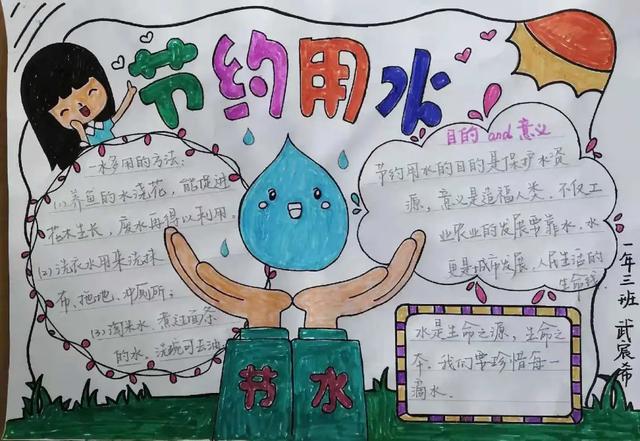 节约用水
一水多用的方法:
(1)养鱼的水浇花,能促进
花木生长,废水再得以利用。
(2)洗衣水用来洗抹
布、拖地、冲厕所;
(3)淘米水、煮过面条
的水、洗碗可去油
目的 and 意义
节约用水的目的是保护水资
源,意义是造福人类。不仅工
业农业的发展要靠水,水
更是城市发展、人民生活的
生命线
水是生命之源,生命之
本,我们要珍惜每一
滴水。
节水
一年三班 武宸希